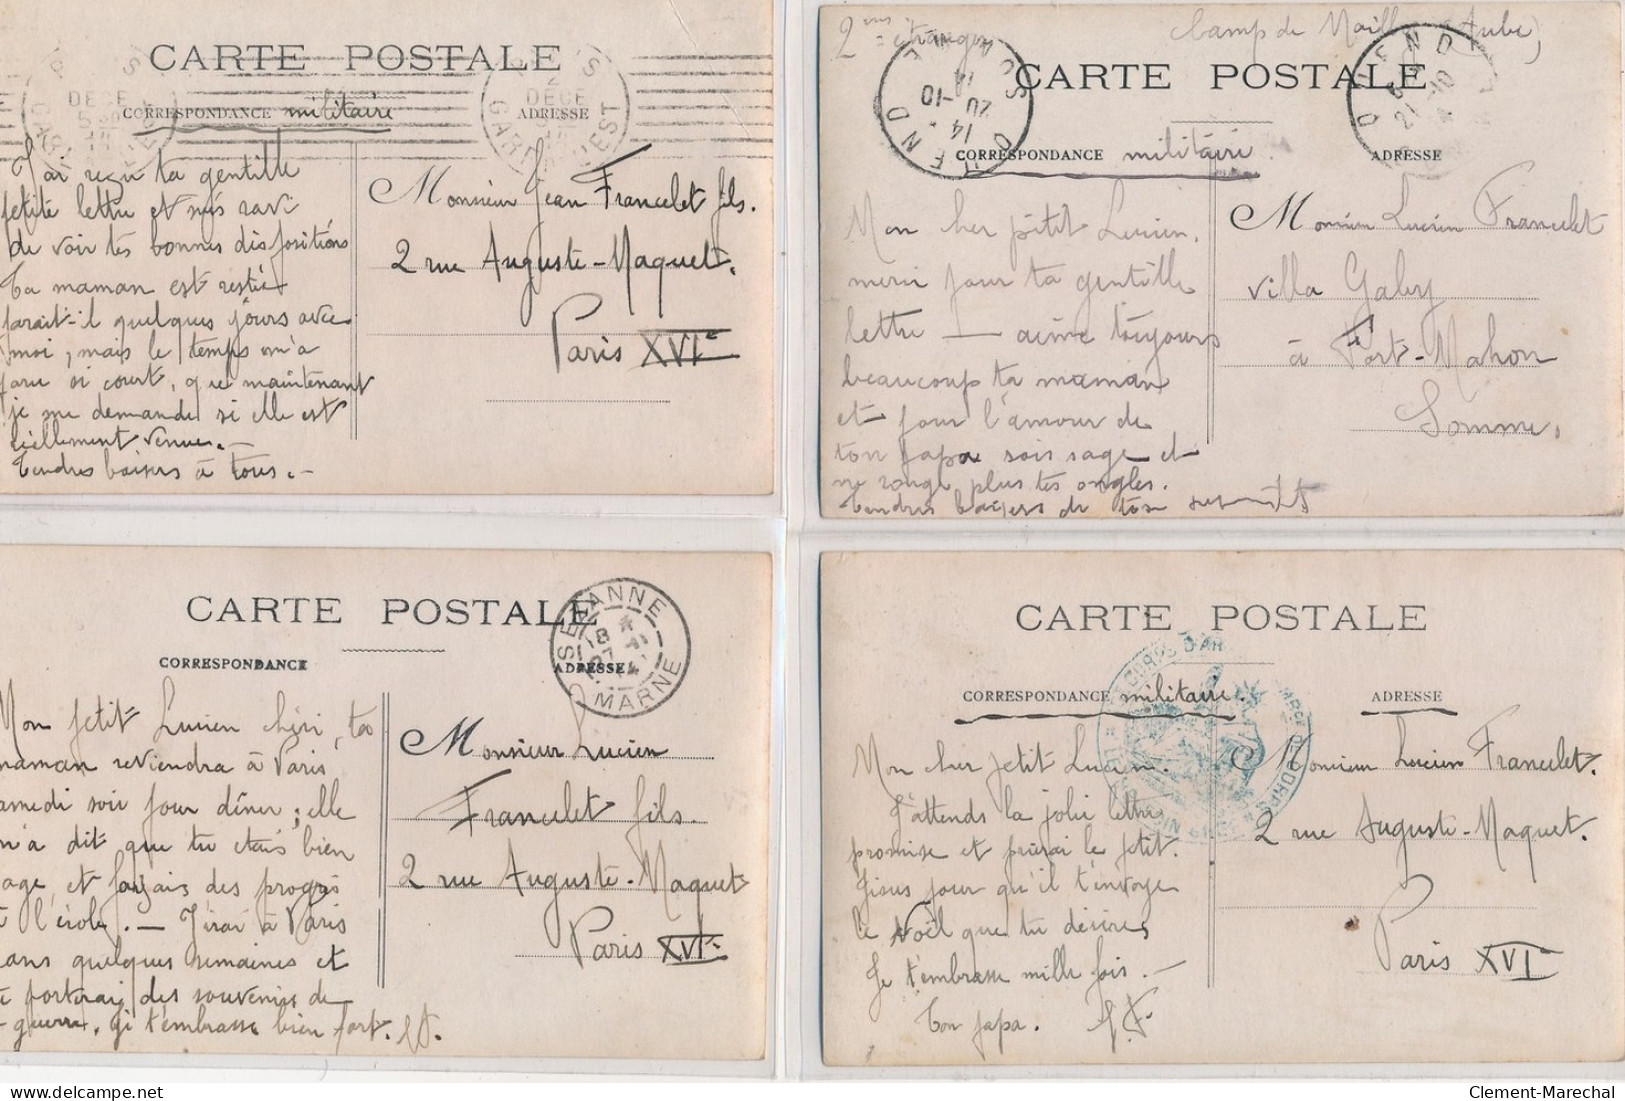 CARTE POSTALE
CORRESPONDANCE militaire
ADRESSE
DECE
J'ai reçu ta gentille
petite lettre et suis ravi
de voir tes bonnes dispositions
Ta maman est restée
parait-il quelques jours avec
moi, mais le temps m'a
paru si court, que maintenant
je me demande si elle est
réellement venue. —
Tendres baisers à tous. —
Monsieur Jean Francelet fils.
2 rue Auguste-Maquet.
Paris XVIe
2me étranger
Camp de Mailly (Aube)
CARTE POSTALE
CORRESPONDANCE militaire.
ADRESSE
20-10
14
21-10
Mon cher petit Lucien,
merci pour ta gentille
lettre — aime toujours
beaucoup ta maman
et pour l'amour de
ton papa sois sage et
ne ronge plus tes ongles.
Tendres baisers de ton
Monsieur Lucien Francelet
villa Gaby
à Fort-Mahon
Somme.
CARTE POSTALE
CORRESPONDANCE
ADRESSE
SEZANNE
MARNE
Mon petit Lucien chéri, ta
maman reviendra à Paris
samedi soir pour dîner; elle
m'a dit que tu étais bien
sage et faisais des progrès
à l'école. — J'irai à Paris
dans quelques semaines et
te porterai des souvenirs de
guerre. Je t'embrasse bien fort.
Monsieur Lucien
Francelet fils.
2 rue Auguste-Maquet
Paris XVIe
CARTE POSTALE
CORRESPONDANCE militaire.
ADRESSE
CORPS D'AR
Mon cher petit Lucien.
J'attends la jolie lettre
promise et prierai le petit
Jésus pour qu'il t'envoye
le Noël que tu désires
Je t'embrasse mille fois. —
Ton papa. J.F.
Monsieur Lucien Francelet.
2 rue Auguste-Maquet.
Paris XVI
Clement-Marechal